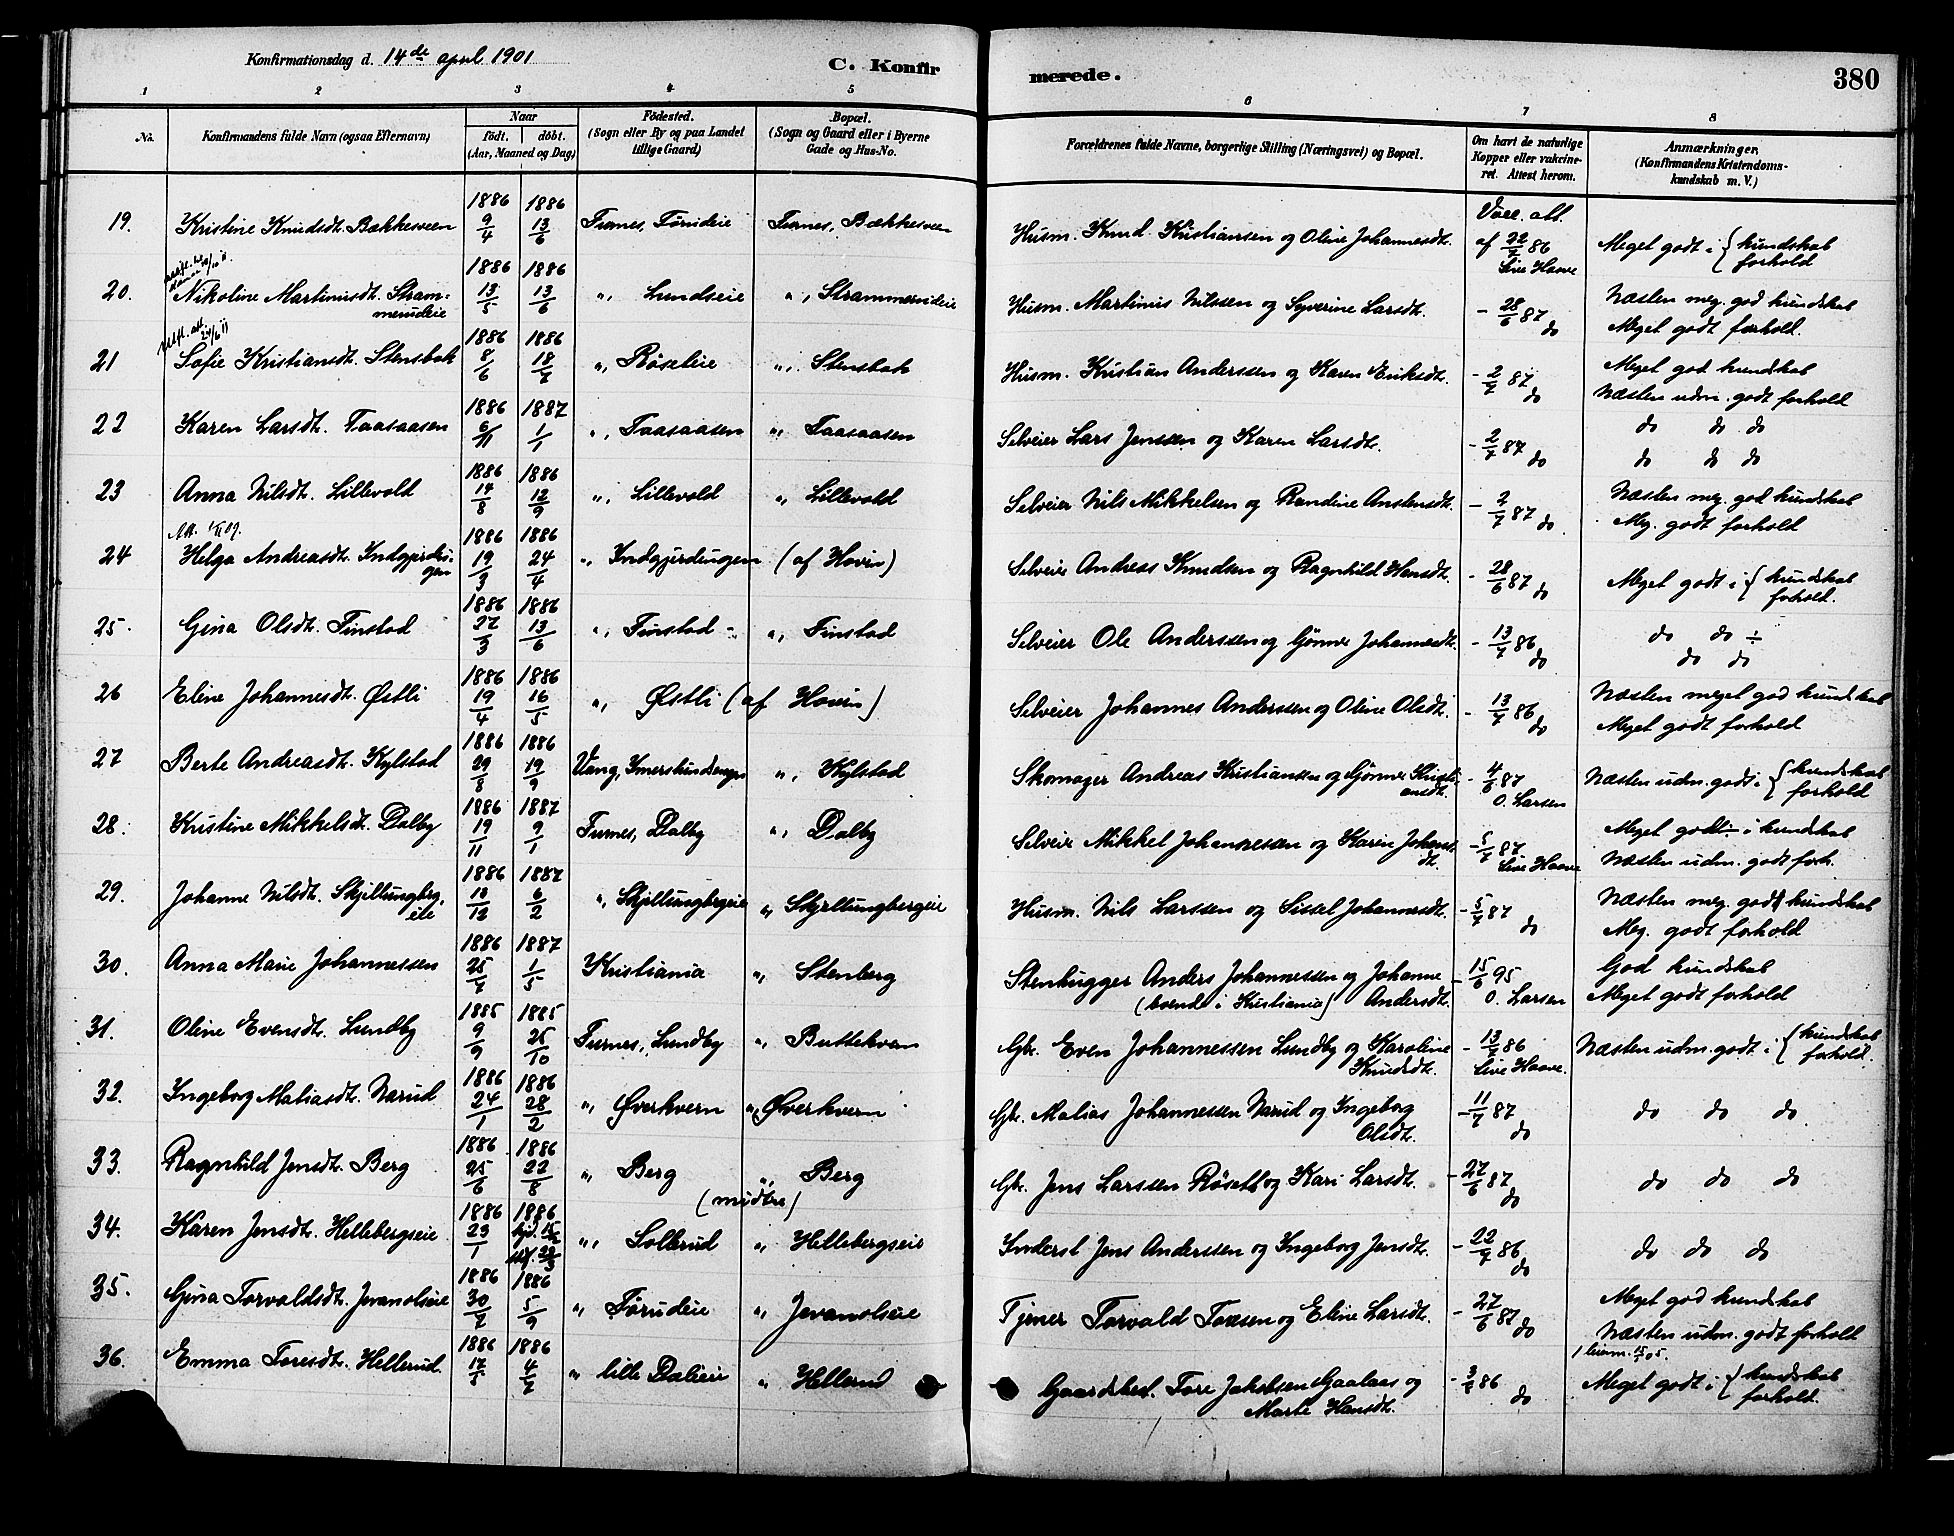 Konfirmationsdag d. 14de april 1901
C. Konfirmerede.
380
1 2 3 4 5 6 7 8
No. Konfirmandens fulde Navn (ogsaa Efternavn) Naar födt. döbt. (Aar, Maaned og Dag) Födested. (Sogn eller By og paa Landet tillige Gaard) Bopæl. (Sogn og Gaard eller i Byerne Gade og Hus-No. Forældrenes fulde Navne, borgerlige Stilling (Næringsvei) og Bopæl. Om havt de naturlige Kopper eller vakcineret. Attest herom. Anmærkninger. (Konfirmandens Kristendomskundskab m. V.)
19. Kristine Knudsdt. Bækkesveen 1886 9/4 1886 13/6 Furnes, Törudeie Furnes, Bækkesveen Husm. Knud Kristiansen og Oline Johannesdt. Vacc. att. af 22/7 86 Sive Haave Meget godt i { kundskab forhold
20. Nikoline Martinusdt. Strammerudeie 1886 13/5 1886 13/6 " Lundseie " Strammerudeie Husm. Martinus Nilssen og Syverine Larsdt. - 28/6 87 do Næsten meg. god kundskab Meget godt forhold.
21 Sofie Kristiansdt. Stensbak 1886 8/6 1886 18/7 " Röseleie " Stensbak Husm. Kristian Anderssen og Karen Eriksdt. - 2/7 87 do Meget god kundskab Næsten udm. godt forhold
22 Karen Larsdt. Taasaasen 1886 6/11 1887 1/1 " Taasaasen " Taasaasen Selveier Lars Jenssen og Karen Larsdt. - 2/7 87 do do do do do do do
23 Anna Nilsdt. Lillevold 1886 14/8 1886 12/9 " Lillevold " Lillevold Selveier Nils Mikkelsen og Randine Anstensdt. - 2/7 87 do Næsten meg. god kundskab Meg. godt forhold
24 Helga Andreasdt. Indgjerdingen 1886 19/3 1886 24/4 " Indgjerdingen (af Hovin) Selveier Andreas Knudsen og Ragnhild Hansdt. - 28/6 87 do Meget godt i { kundskab forhold.
25. Gina Olsdt. Finstad 1886 27/3 1886 13/6 " Finstad " Finstad Selveier Ole Anderssen og Gönner Johannesdt. - 13/7 86 do do do ÷ do do
26 Eline Johannesdt. Østli 1886 19/4 1886 16/5 " Østli (af Hovin) Selveier Johannes Anderssen og Oline Olsdt. - 13/7 86 do Næsten meget god kundskab Meget godt forhold
27 Berte Andreasdt. Kylstad 1886 29/8 1886 19/9 Vang, Imerslundengen " Kylstad Skomager Andreas Kristiansen og Gönner Kristiansdt. - 4/6 87 O. Larsen Næsten udm. godt i { kundskab forhold
28. Kristine Mikkelsdt. Dalby 1886 19/11 1887 9/1 Furnes, Dalby " Dalby Selveier Mikkel Johannessen og Karin Johansdt. - 5/7 87 Sive Haave Meget godt i kundskab Næsten udm. godt forh.
29. Johanne Nilsdt. Skjellungbergeie 1886 18/12 1887 6/2 " Skjellungbergeie " Skjellungbergeie Husm. Nils Larssen og Sissel Johannesdt. - 5/7 87 do Næsten meg. god kundskab Meg. godt forhold
30. Anna Marie Johannessen 1886 25/4 1887 1/5 Kristiania " Stenberg Stenhugger Anders Johannessen og Johanne Andersdt. (boende i Kristiania) - 15/6 95 O. Larsen God kundskab Meget godt forhold
31. Oline Evensdt. Lundby 1885 9/9 1885 25/10 Furnes, Lundby " Buttekvern Gbr. Even Johannessen Lundby og Karoline Knudsdt. - 13/7 86 Sive Haave. Næsten udm. godt i { kundskab forhold.
32. Ingeborg Matiasdt. Narud 1886 24/1 1886 28/2 " Øverkvern " Øverkvern Gbr. Matias Johannessen Narud og Ingeborg Olsdt. - 11/7 87 do do do do
33. Ragnhild Jensdt. Berg 1886 25/6 1886 22/8 " Berg (midtre) " Berg Gbr. Jens Larssen Röset og Kari Larsdt. - 27/6 87 do do do do
34. Karen Jensdt. Hellebergseie 1886 23/1 1886 " Sollerud " Hellebergseie Inderst Jens Anderssen og Ingeborg Jensdt. - 22/7 86 do do do do
35. Gina Torvaldsdt. Jevanolseie 1886 30/7 1886 5/9 " Törudeie " Jevanolseie Tjener Torvald Toresen og Eline Larsdt. - 27/6 87 do Meget god kundskab Næsten udm. godt forhold
36. Emma Toresdt. Hellerud. 1886 17/5 1886 4/7 " lille Dalieie " Hellerud Gaardsbest. Tore Jakobsen Gaalaas og Marte Hansdt. - 3/8 86 do Meget godt i { kundskab forhold.